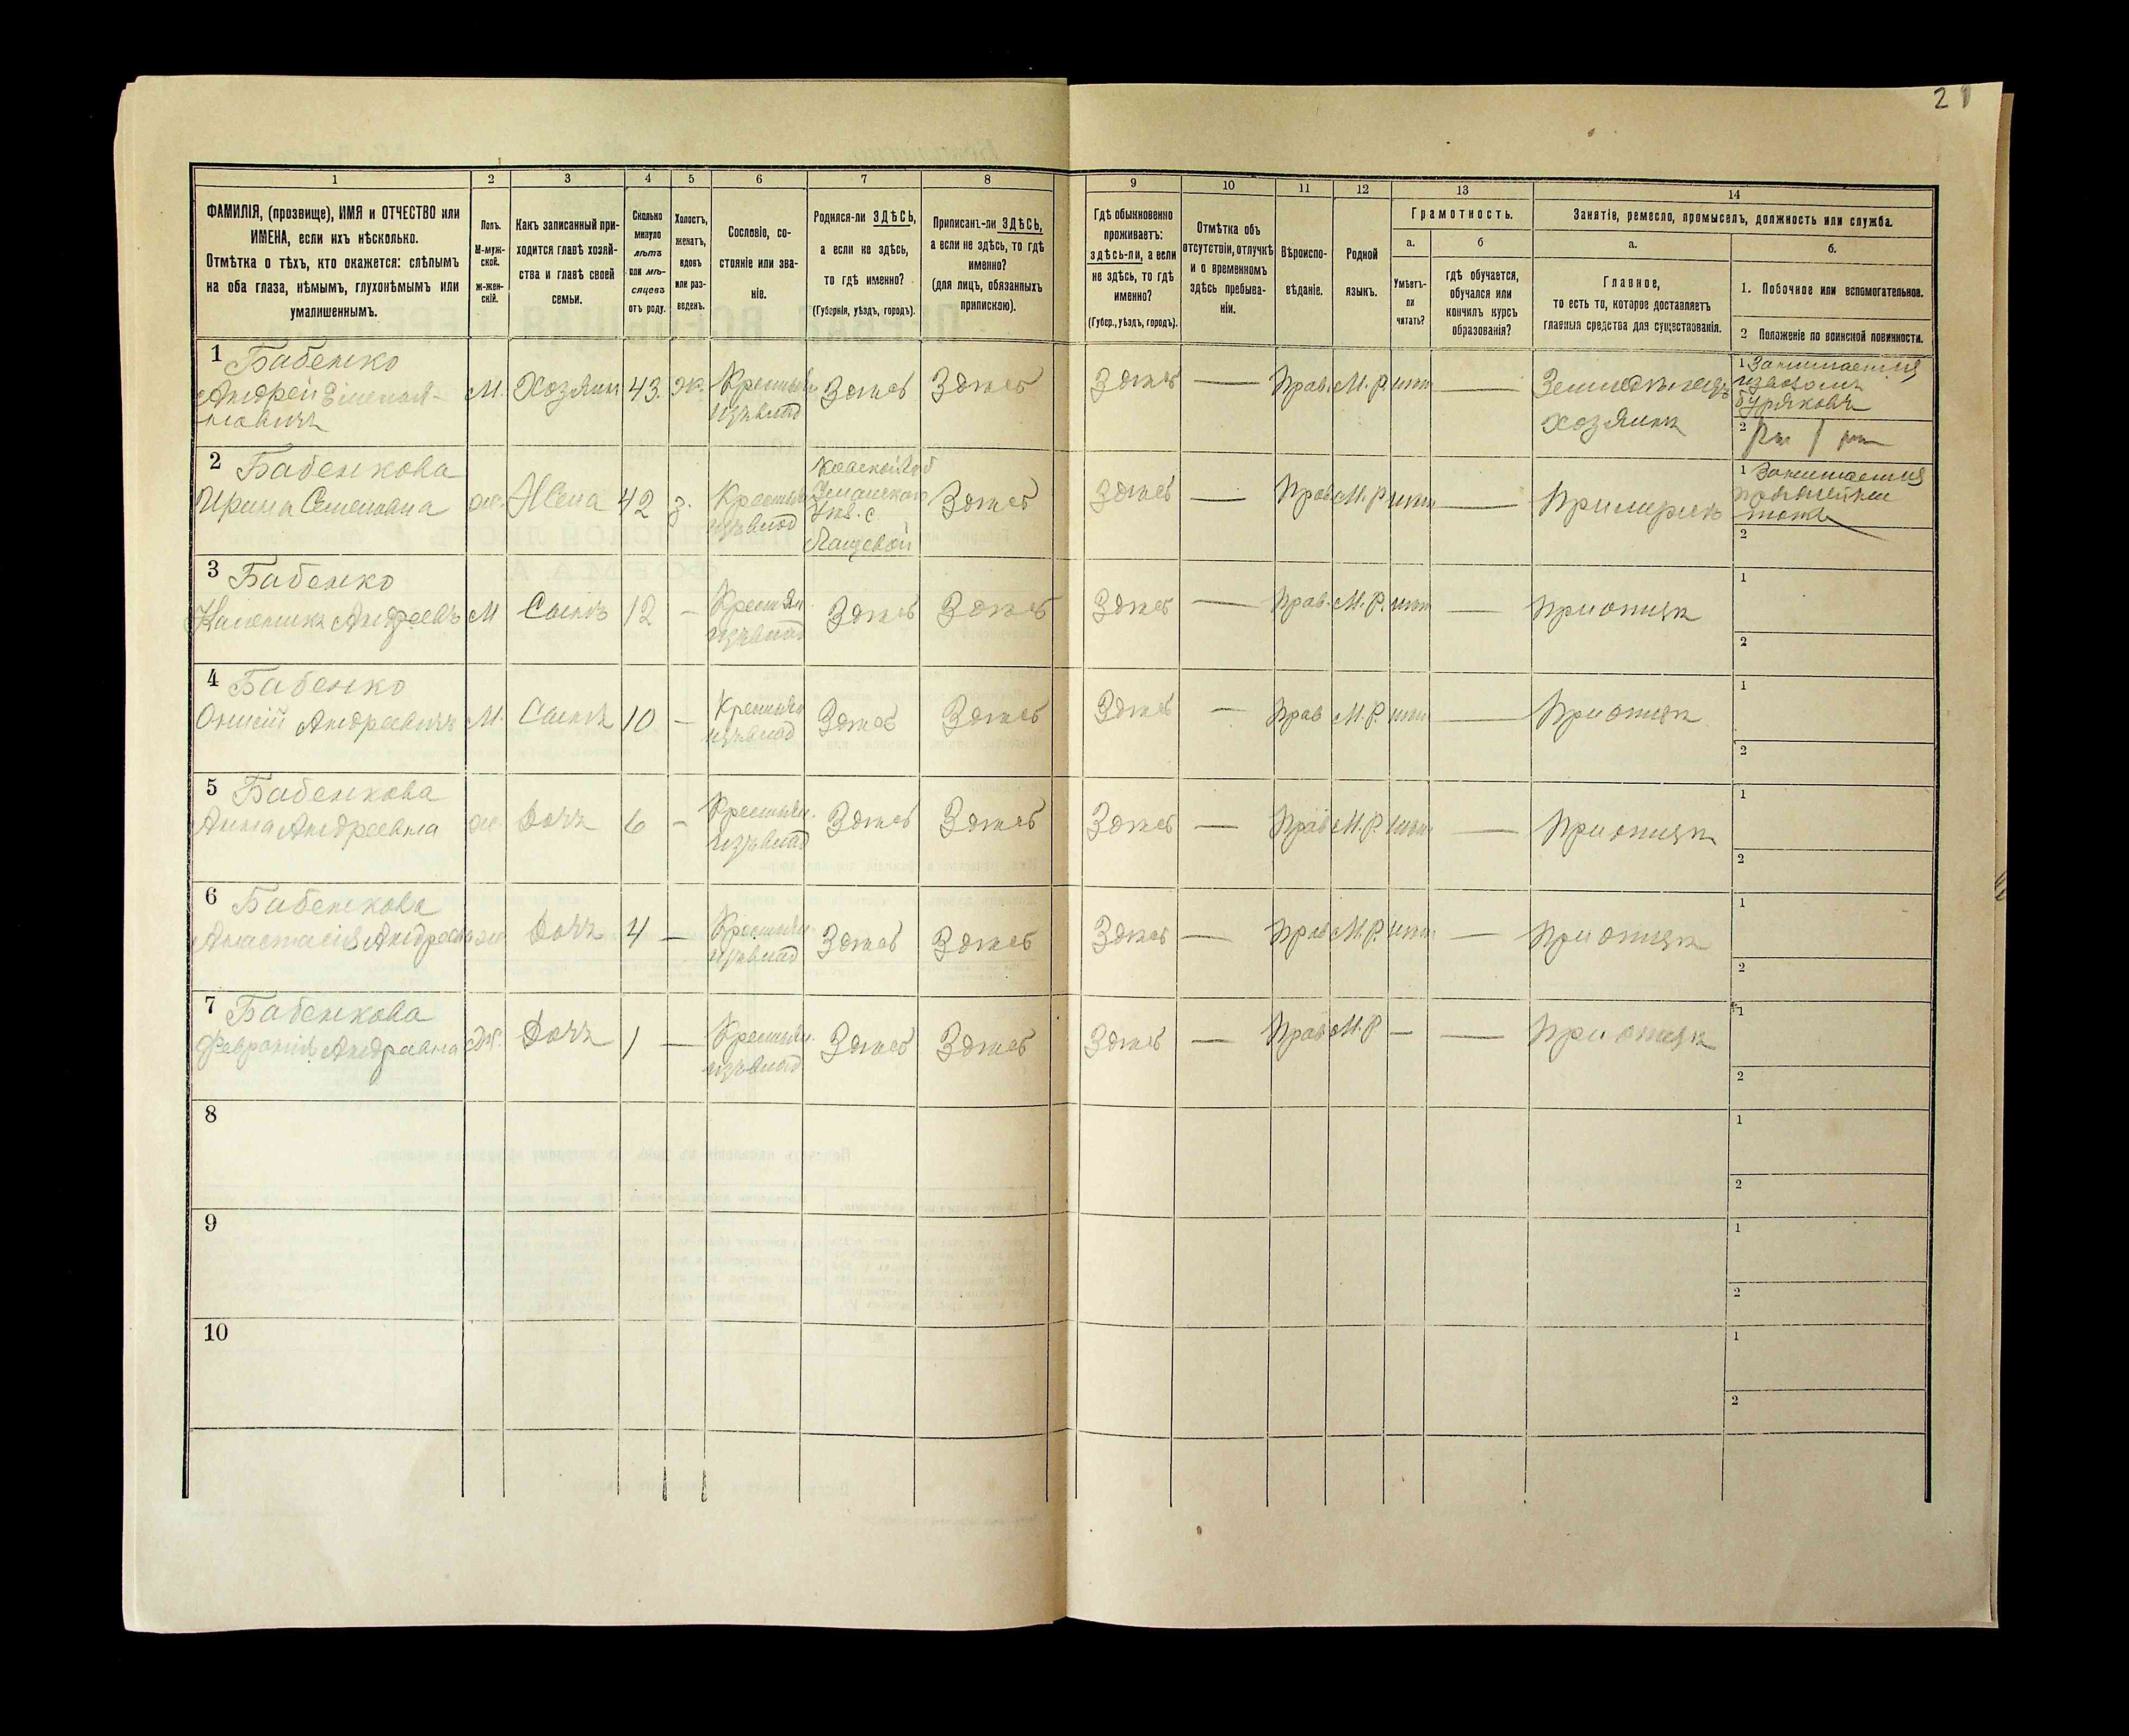 21
1
2
3
4
5
6
7
8
9
10
11
12
13
14
ФАМИЛІЯ, (прозвище), ИМЯ и ОТЧЕСТВО или
ИМЕНА, если ихъ нѣсколько.
Отмѣтка о тѣхъ, кто окажется: слѣпымъ
на оба глаза, нѣмымъ, глухонѣмымъ или
умалишеннымъ.
Полъ.
М-муж-
ской.
ж-жен-
скій.
Какъ записанный при-
ходится главѣ хозяй-
ства и главѣ своей
семьи.
Сколько
минуло
лѣтъ
или мѣ-
сяцевъ
отъ роду.
Холостъ,
женатъ,
вдовъ
или раз-
веденъ.
Сословіе, со-
стояніе или зва-
ніе.
Родился-ли ЗДѢСЬ,
а если не здѣсь,
то гдѣ именно?
(Губернія, уѣздъ, городъ).
Приписанъ-ли ЗДѢСЬ,
а если не здѣсь, то гдѣ
именно?
(для лицъ, обязанныхъ
припискою).
Гдѣ обыкновенно
проживаетъ:
здѣсь-ли, а если
не здѣсь, то гдѣ
именно?
(Губер., уѣздъ, городъ).
Отмѣтка объ
отсутствіи, отлучкѣ
и о временномъ
здѣсь пребыва-
ніи.
Вѣроиспо-
вѣданіе.
Родной
языкъ.
Грамотность.
а.
Умѣетъ-
ли
читать?
б
гдѣ обучается,
обучался или
кончилъ курсъ
образованія?
Занятіе, ремесло, промыселъ, должность или служба.
а.
Главное,
то есть то, которое доставляетъ
главныя средства для существованія.
б.
1. Побочное или вспомогательное.
2 Положеніе по воинской повинности.
1 Бабенко
Андрей
М. Хозяинъ 43. ж. Крестьян. Здѣсь Здѣсь
Здѣсь — Прав. М. Р. нѣтъ —
Земледѣлецъ
хозяинъ
1 Занимается
извозомъ
буряковъ
2
2 Бабенкова
Ирина Семеновна
ж. Жена 42 з. Крестьян Здѣсь
Уѣз. с.
Здѣсь — Прав. М. Р. нѣтъ —
1 Занимается
2
3 Бабенко
Андреевъ
М Сынъ 12 — Крестьян. Здѣсь Здѣсь
Здѣсь — Прав. М. Р. нѣтъ — при отцѣ
1
2
4 Бабенко
Андреевичъ
М. Сынъ 10 — Крестьян Здѣсь Здѣсь
Здѣсь — Прав М. Р. нѣтъ — при отцѣ
1
2
5 Бабенкова
Анна Андреевна
ж. Дочь 6 — Крестьян. Здѣсь Здѣсь
Здѣсь — Прав М. Р. нѣтъ — при отцѣ
1
2
6 Бабенкова
Анастасія
ж Дочь 4 — Крестьян. Здѣсь Здѣсь
Здѣсь — Прав М. Р. нѣтъ — при отцѣ
1
2
7 Бабенкова
Февронія Андревна
ж. Дочь 1 — Крестьян. Здѣсь Здѣсь
Здѣсь — Прав М. Р — — при отцѣ
1
2
8
1
2
9
1
2
10
1
2